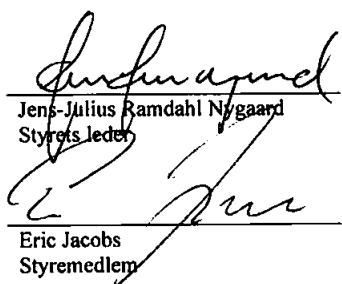 Jens-Julius Ramdahl Nygaard
Styrets leder
Eric Jacobs
Styremedlem